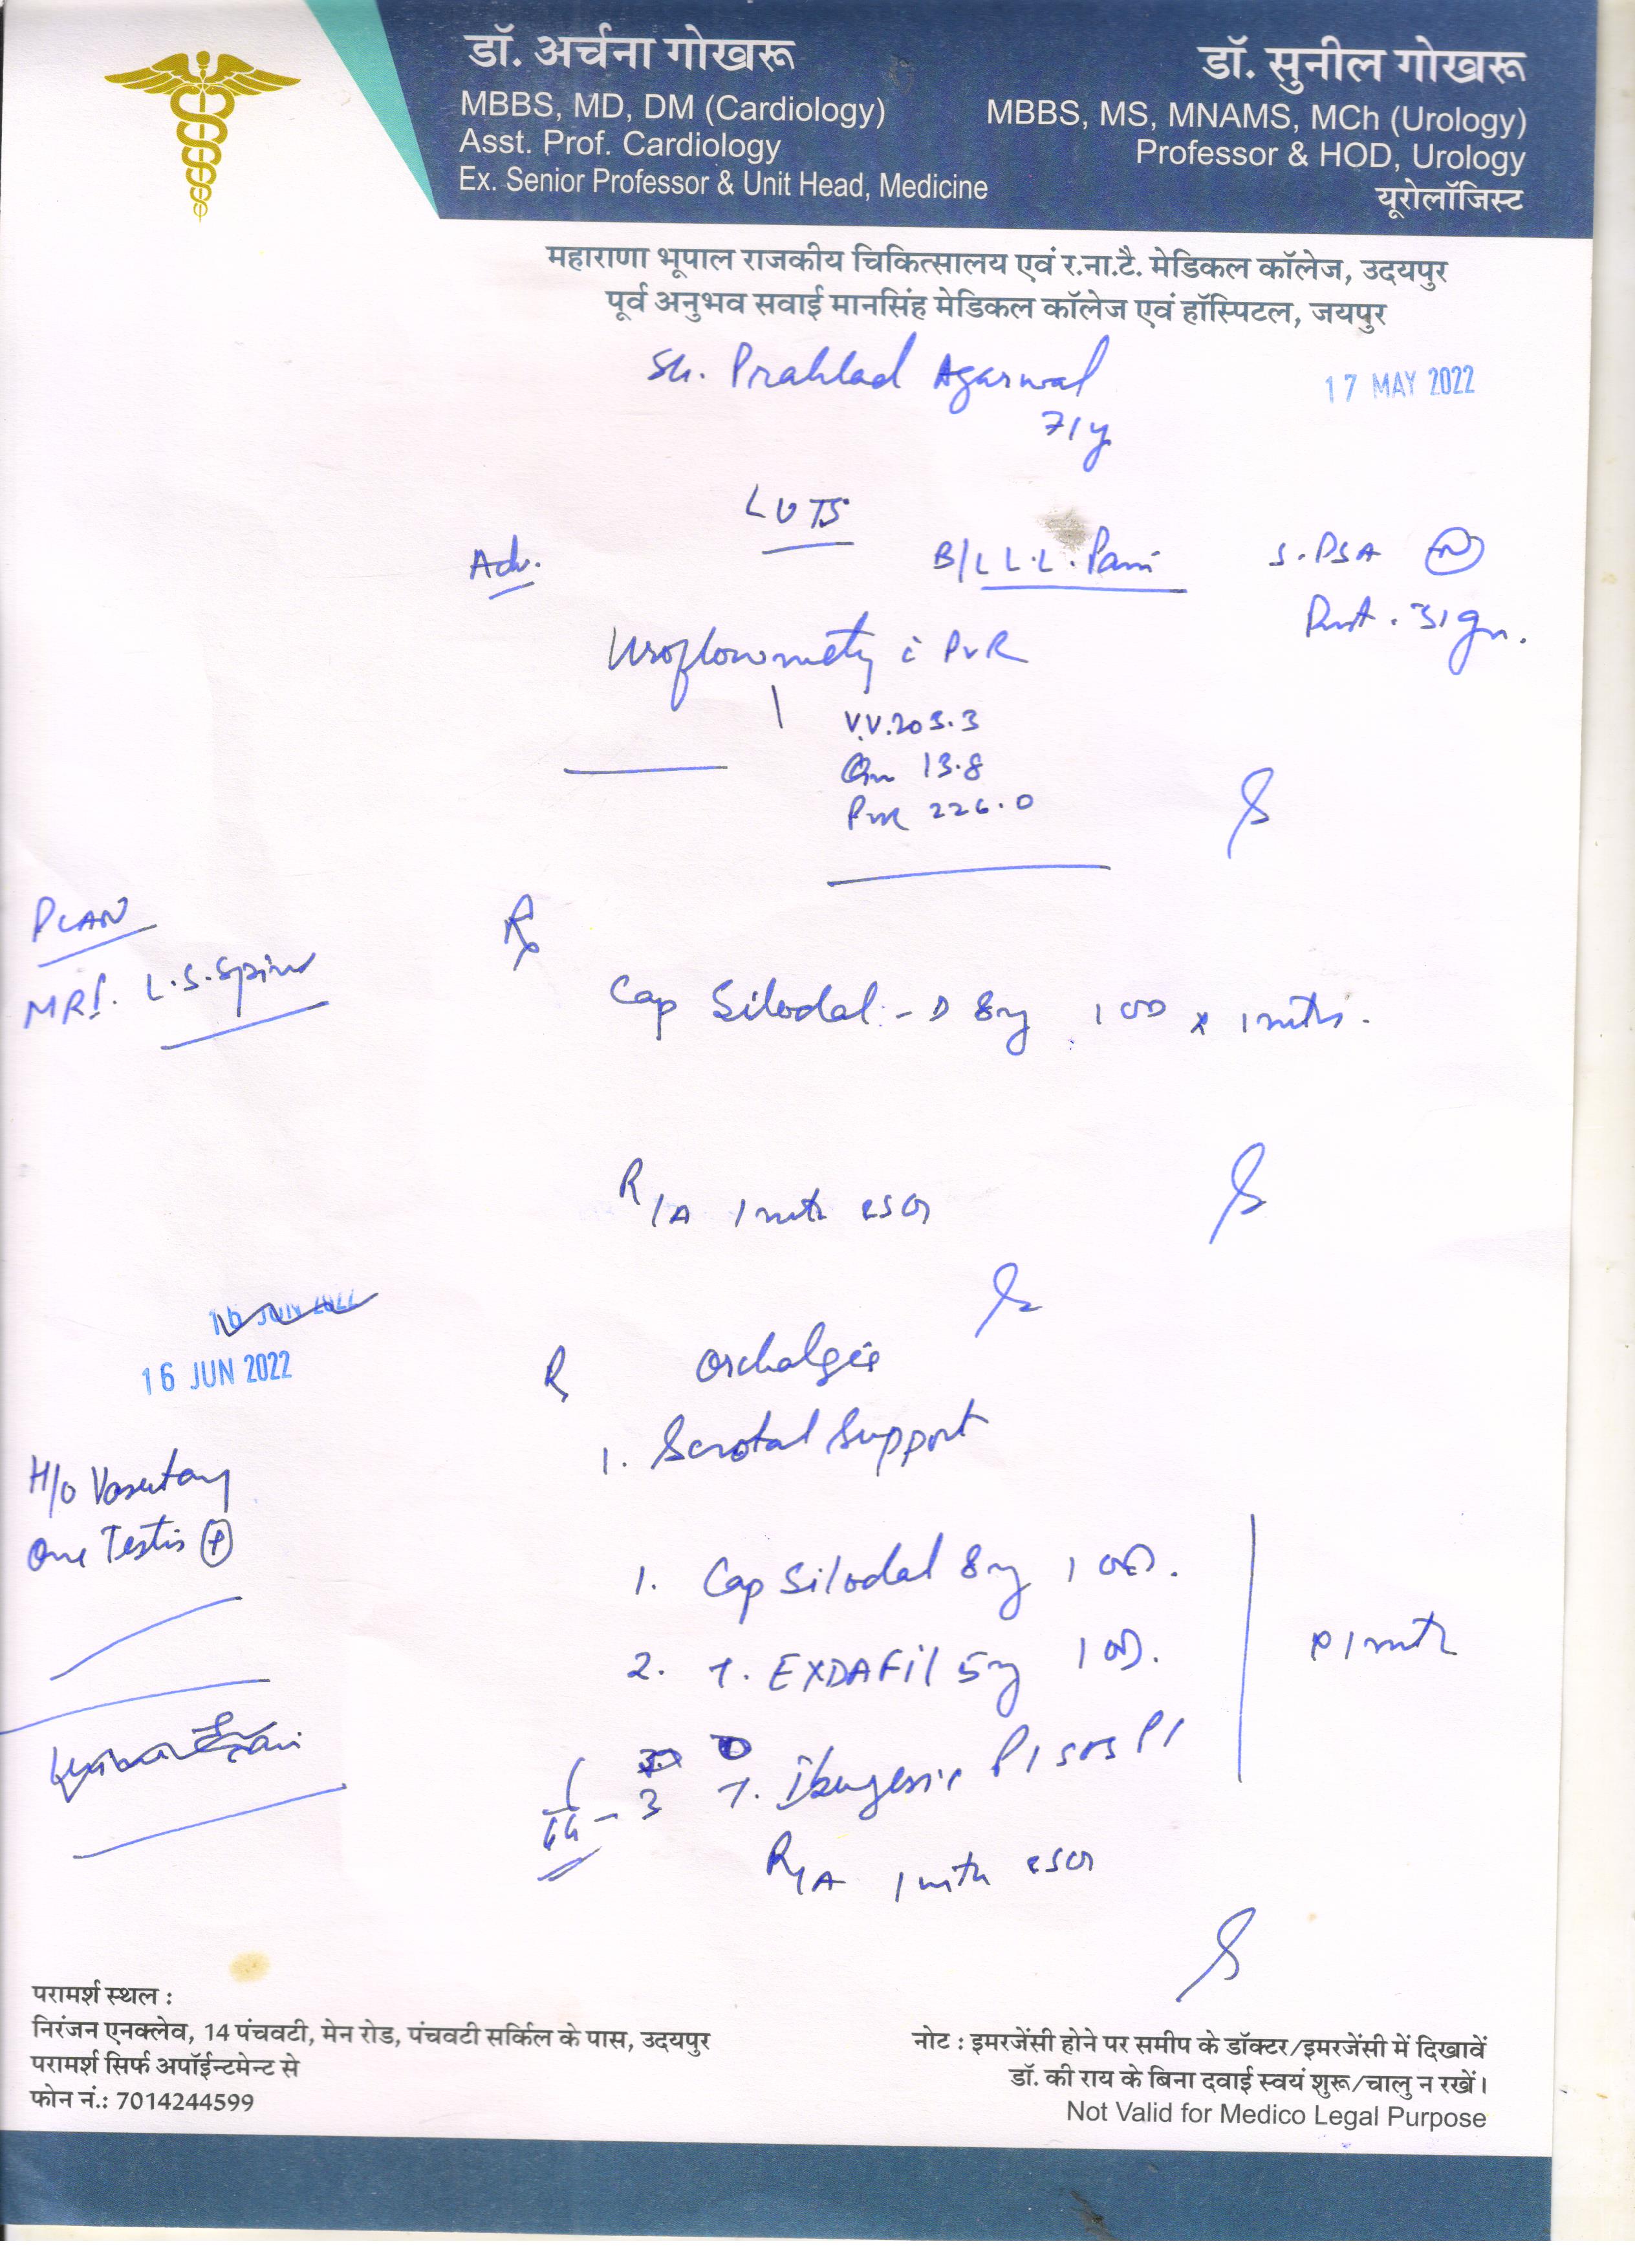 डॉ. अर्चना गोखरू
MBBS, MD, DM (Cardiology)
Asst. Prof. Cardiology
Ex. Senior Professor & Unit Head, Medicine
डॉ. सुनील गोखरू
MBBS, MS, MNAMS, MCh (Urology)
Professor & HOD, Urology
यूरोलॉजिस्ट
महाराणा भूपाल राजकीय चिकित्सालय एवं र.ना.टै. मेडिकल कॉलेज, उदयपुर
पूर्व अनुभव सवाई मानसिंह मेडिकल कॉलेज एवं हॉस्पिटल, जयपुर
Sh. Prahlad Agarwal
17 MAY 2022
71y
LUTS
Adv.
B/L L.L. Pain
S. PSA N
31 gm.
Uroflowmetry c PVR
V.V. 203.3
Qm 13.8
PVR 226.0
PLAN
MRI. L.S. Spine
Rx
Cap Silodal-D 8mg 1 OD x 1 mth.
R/A 1 mth
16 JUN 2022
16 JUN 2022
R
Orchalgia
1. Scrotal Support
H/o Vasectomy
One Testis +
1. Cap Silodal 8mg 1 OD.
2. T. EXDAFil 5mg 1 OD.
x 1 mth
3 T. Ibugesic P 1 SOS
R/A 1 mth
परामर्श स्थल :
निरंजन एनक्लेव, 14 पंचवटी, मेन रोड, पंचवटी सर्किल के पास, उदयपुर
परामर्श सिर्फ अपॉईन्टमेन्ट से
फोन नं.: 7014244599
नोट : इमरजेंसी होने पर समीप के डॉक्टर/इमरजेंसी में दिखावें
डॉ. की राय के बिना दवाई स्वयं शुरू/चालु न रखें।
Not Valid for Medico Legal Purpose